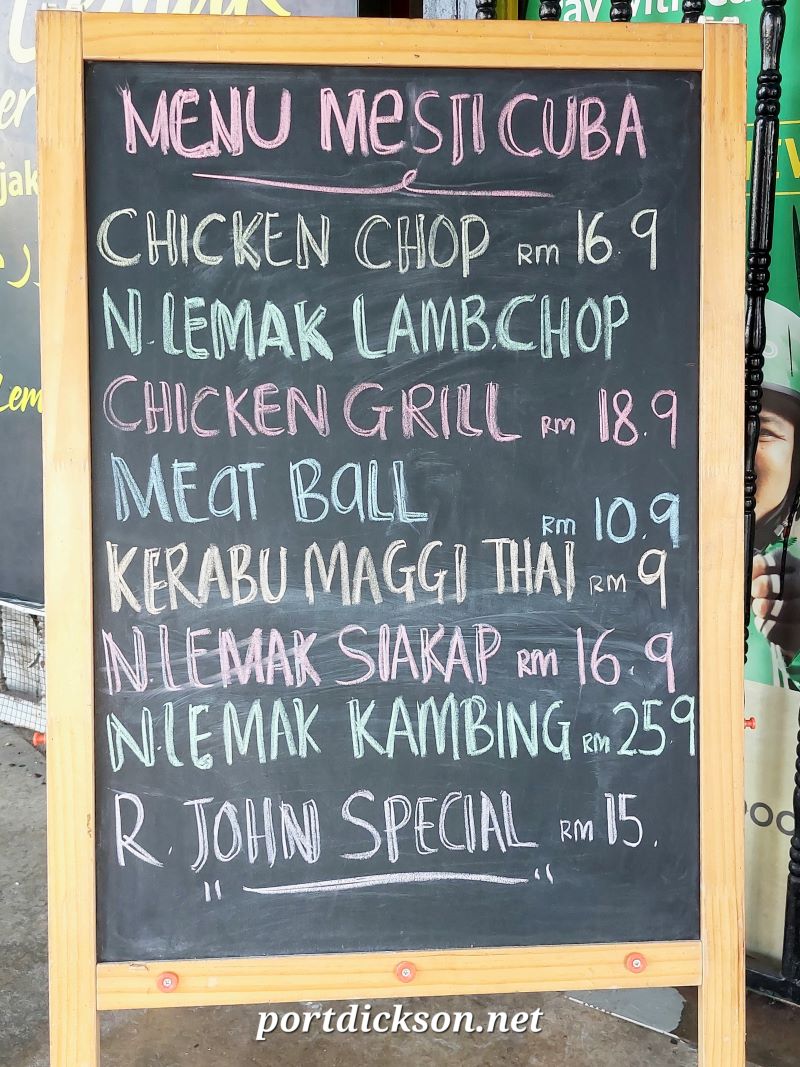 MENU MeSTI CUBA
CHICKEN CHOP RM 16 9
N.LEMAK LAMB.CHOP
CHICKEN GRILL RM 18.9
MEaT BaLL RM 10.9
KERABU MAGGI THAI RM 9
N.LEMAK SIAKAP RM 16.9
N.LEMAK KAMBING RM 259
R. JOHN SPECIAL RM 15.
portdickson.net